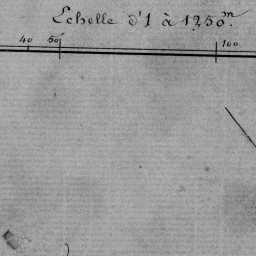 Echelle d'1 à 1250m.
40 50 100